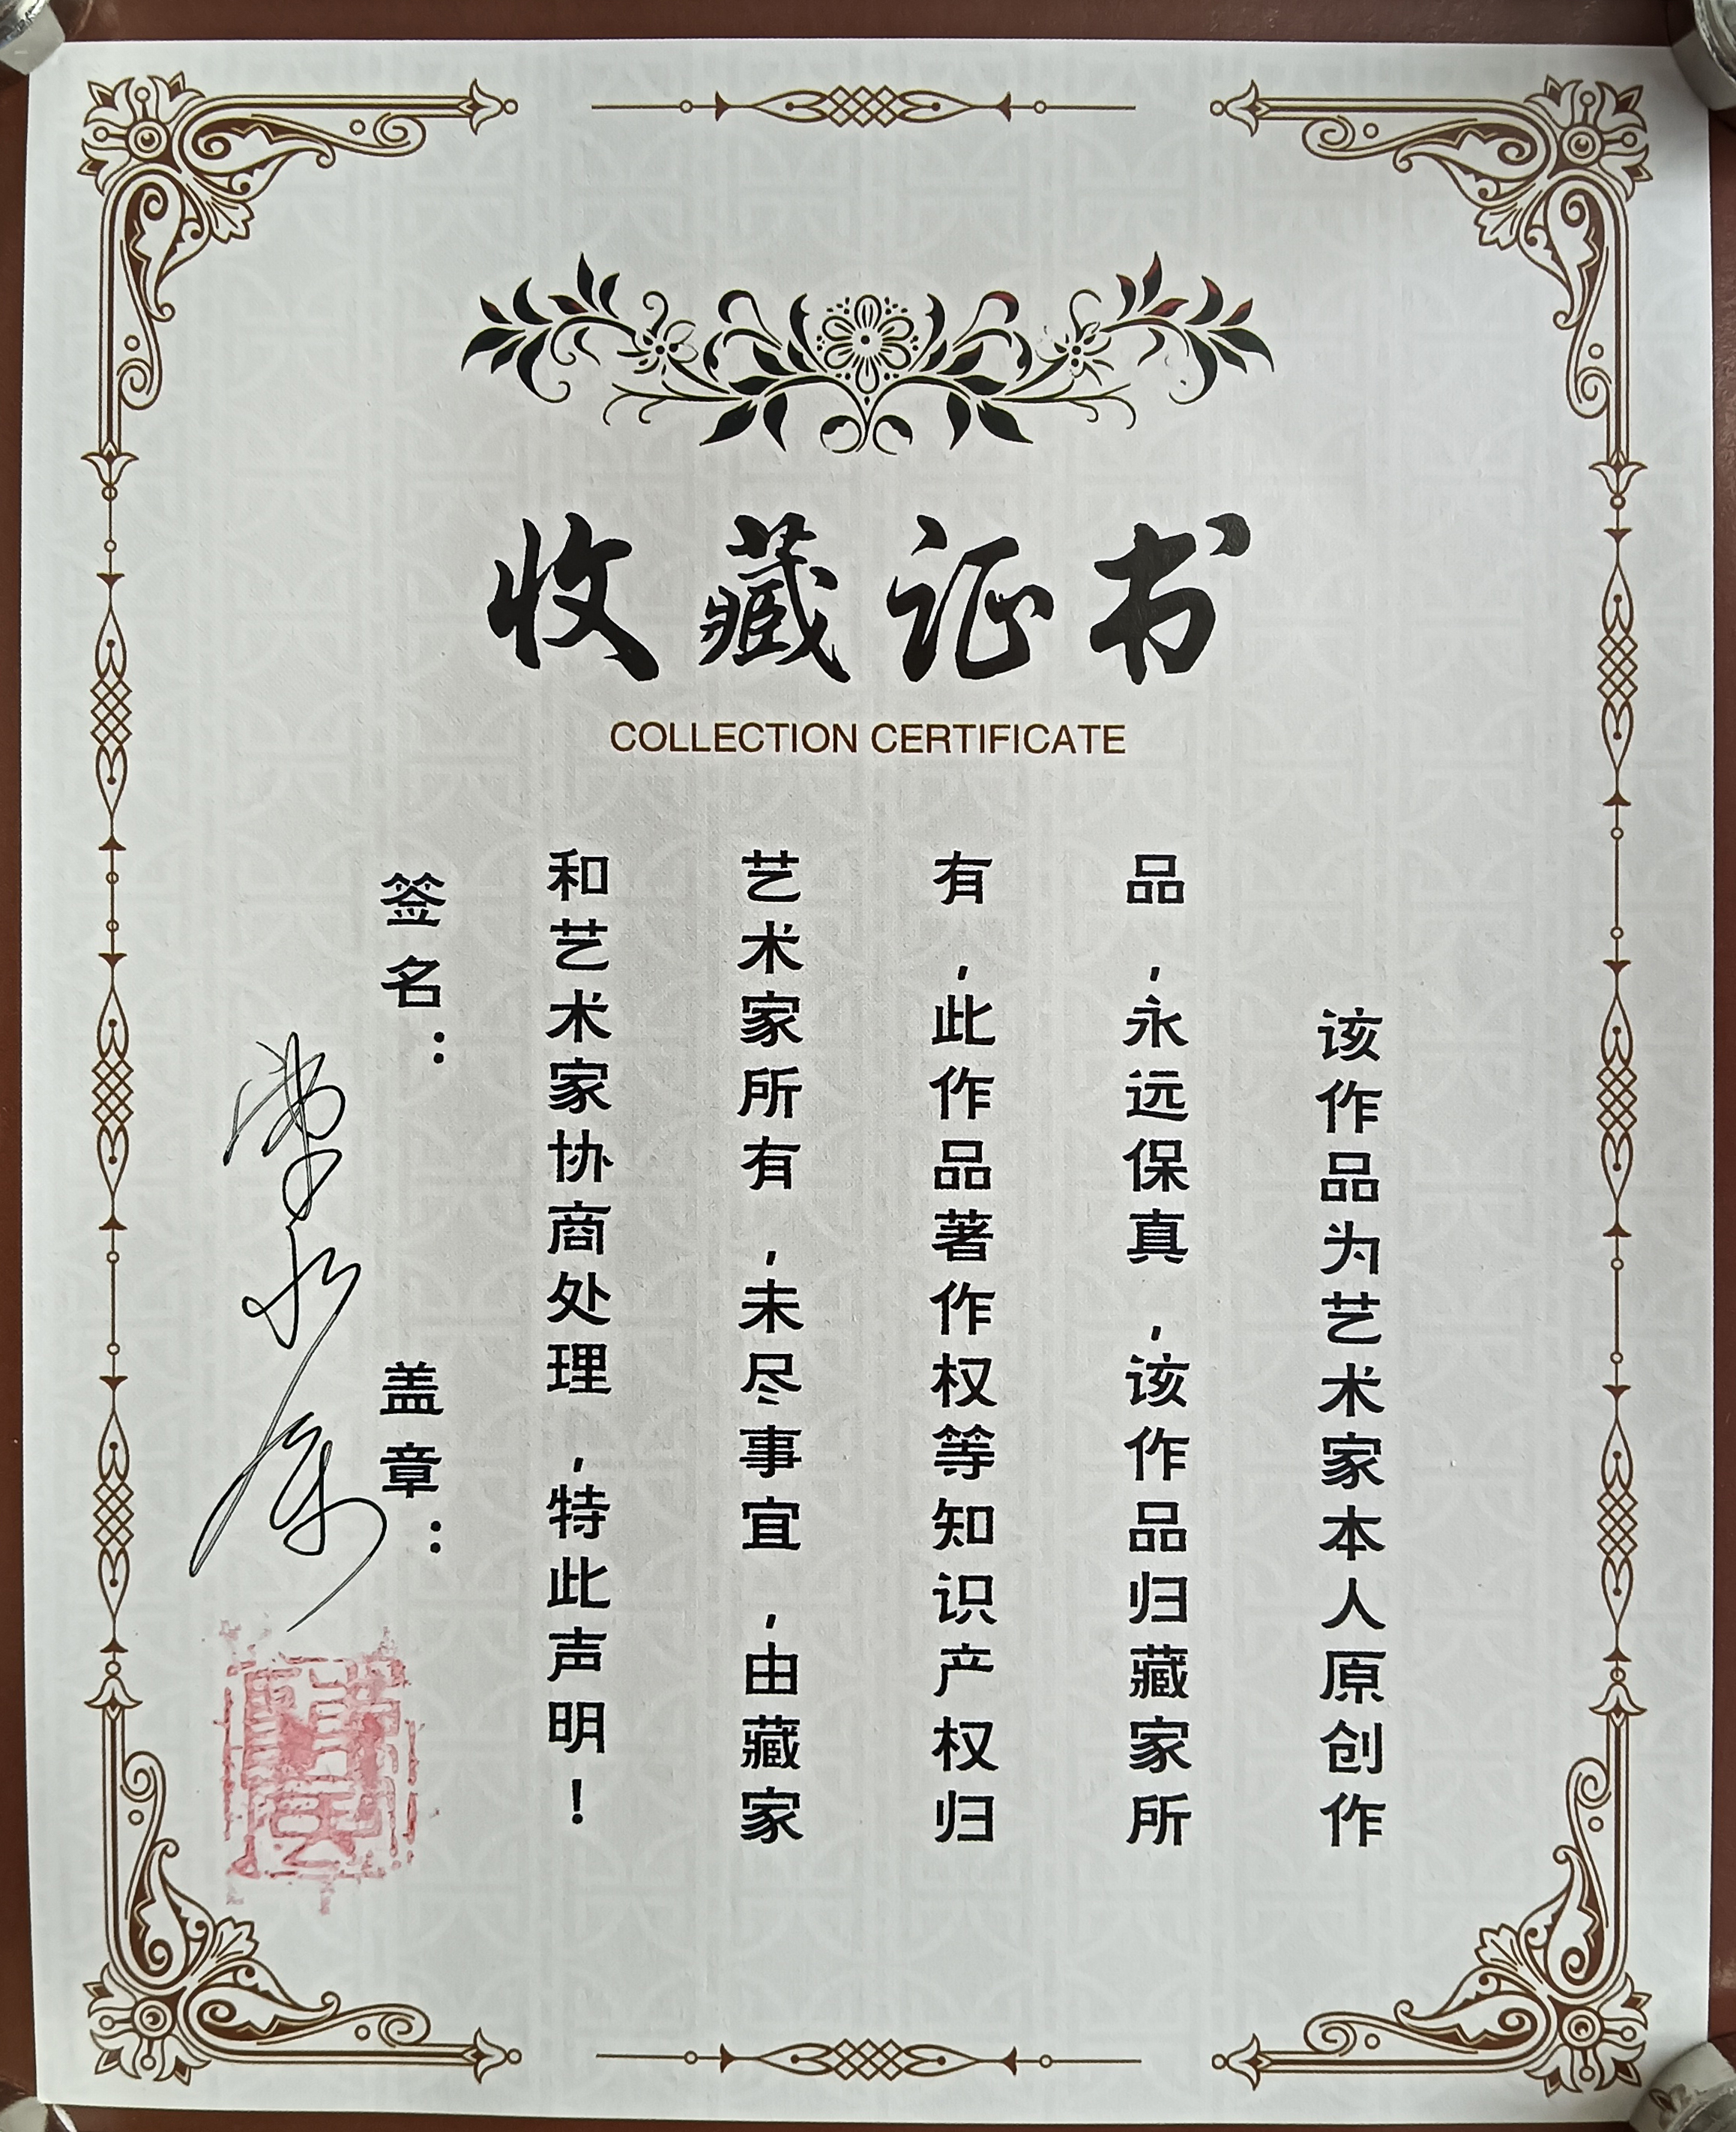 收藏证书
COLLECTION CERTIFICATE
该作品为艺术家本人原创作
品,永远保真,该作品归藏家所
有,此作品著作权等知识产权归
艺术家所有,未尽事宜,由藏家
和艺术家协商处理,特此声明!
签名:
盖章: